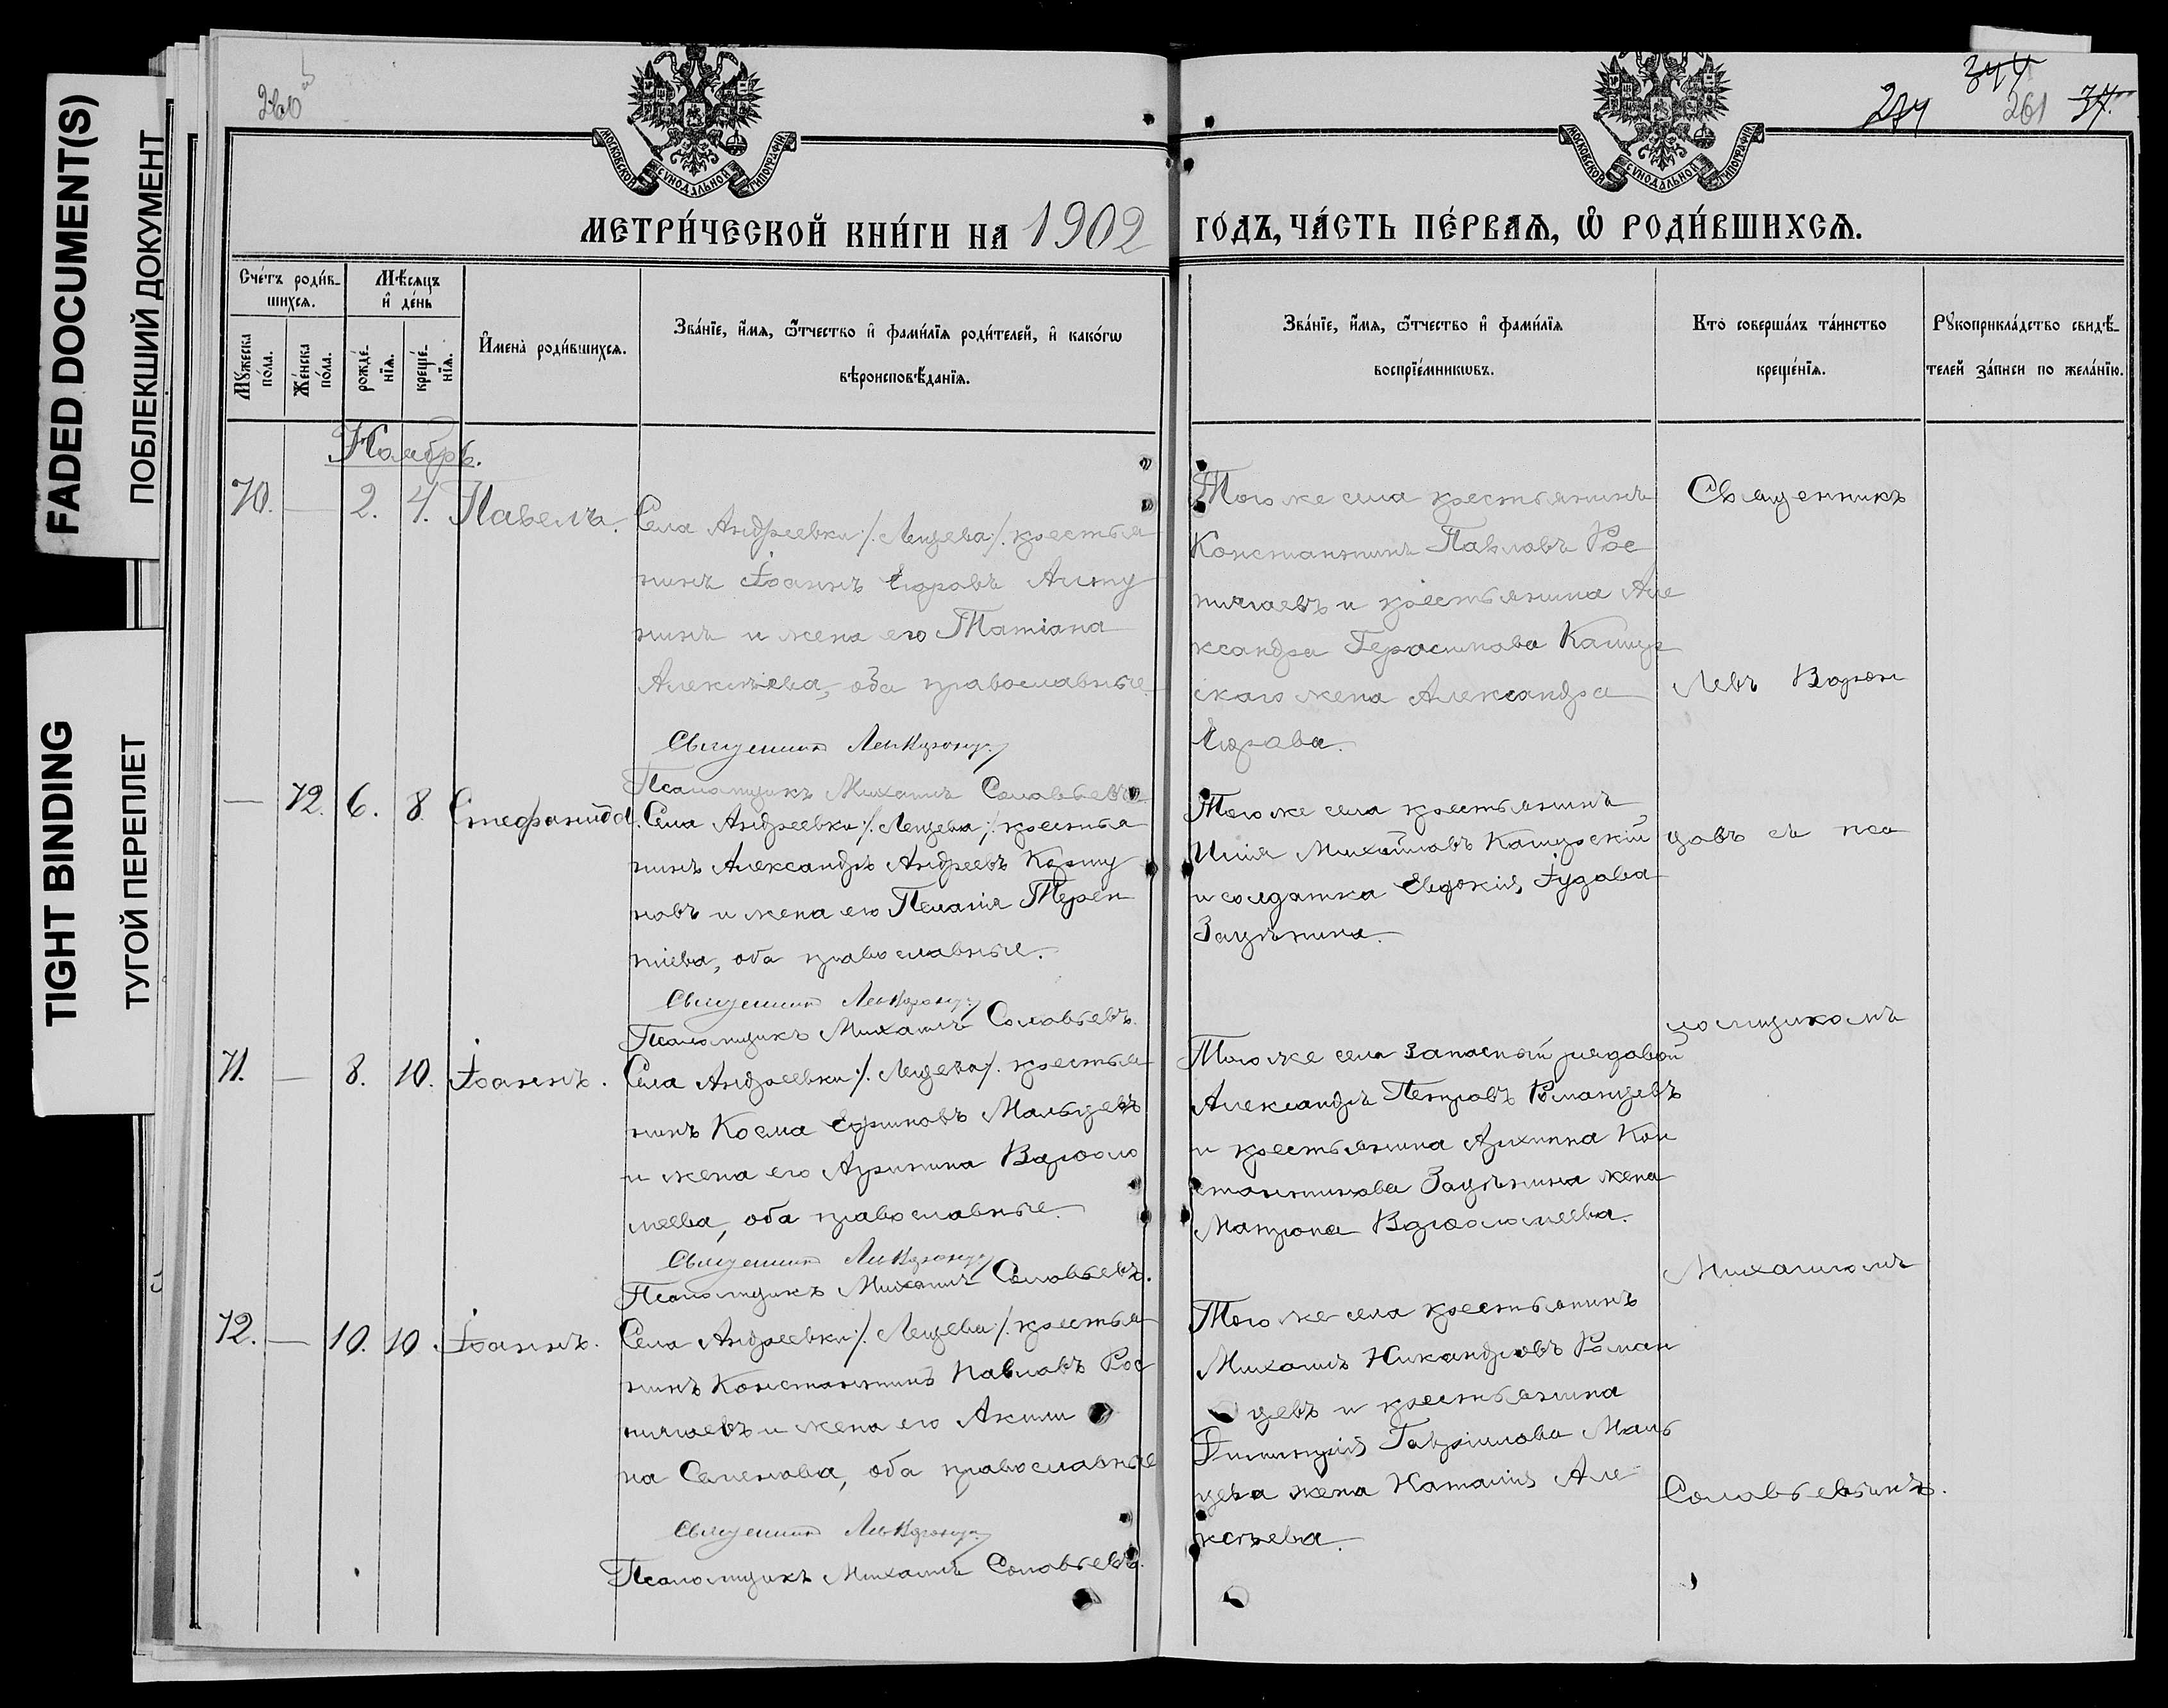 FADED DOCUMENT(S)
ПОБЛЕКШИЙ ДОКУМЕНТ
TIGHT BINDING
ТУГОЙ ПЕРЕПЛЕТ
260 об
261
МОСКОВСКОЙ СѴНОДАЛЬНОЙ ТИПОГРАФІИ
МОСКОВСКОЙ СѴНОДАЛЬНОЙ ТИПОГРАФІИ
МЕТРИ́ЧЕСКОЙ КНИ́ГИ НА 1902 ГО́ДЪ, ЧА́СТЬ ПЕ́РВАѦ, Ѽ РОДИ́ВШИХСѦ.
Сче́тъ роди́в-
шихсѧ.
Мꙋ́жеска по́ла.
Же́нска по́ла.
Мѣ́сѧцъ
и҆ де́нь
рожде́-
нїѧ.
креще́-
нїѧ.
И҆мена̀ роди́вшихсѧ.
Зва́нїе, и҆́мѧ, ѻ҆́тчество и҆ фами́лїѧ роди́телей, и҆ како́гѡ
вѣроисповѣ́данїѧ.
Зва́нїе, и҆́мѧ, ѻ҆́тчество и҆ фами́лїѧ
воспрїе́мникѡвъ.
Кто̀ соверша́лъ та́инство
креще́нїѧ.
Рꙋкоприкла́дство свидѣ́-
телей за́писи по жела́нїю.
Ноябрь.
70. — 2. 4. Павелъ.
Села Андреевки /. Лещева /. крестья
нинъ Іоаннъ Егоровъ Алту
нинъ и жена его Татіана
Алексѣева, оба православные.
Священникъ Левъ
Псаломщикъ Михаилъ Соловьевъ
Того же села крестьянинъ
Константинъ Павловъ Рос
и крестьянина Але
ксандра Герасимова
скаго жена Александра
Егорова.
— 72. 6. 8. Стефанида.
Села Андреевки /. Лещева /. крестья
нинъ Александръ Андреевъ Корту
новъ и жена его Пелагія Терен
тіева, оба православные.
Священникъ Левъ
Псаломщикъ Михаилъ Соловьевъ.
Того же села крестьянинъ
Илія Михайловъ
и солдатка Евдокія Іудова
71. — 8. 10. Іоаннъ.
Села Андреевки /. Лещева /. крестья
нинъ Косма Ефимовъ Мальцевъ
и жена его Агрипина Варѳоло
меева, оба православные.
Священникъ Левъ
Псаломщикъ Михаилъ Соловьевъ.
Того же села запасный рядовой
Александръ Петровъ Романцевъ
и крестьянина Архипа Кон
стантинова жена
Матрона Варѳоломеева.
72. — 10. 10. Іоаннъ.
Села Андреевки /. Лещева /. крестья
нинъ Константинъ Павловъ Рос
и жена его Акили
на Семенова, оба православные
Священникъ Левъ
Псаломщикъ Михаилъ Соловьевъ.
Того же села крестьянинъ
Михаилъ Никандровъ Роман
цевъ и крестьянина
Димитрія Гавріилова Маль
цева жена Наталія Але
ксѣева.
Священникъ
Левъ
съ пса
ломщикомъ
Михаиломъ
Соловьевымъ.